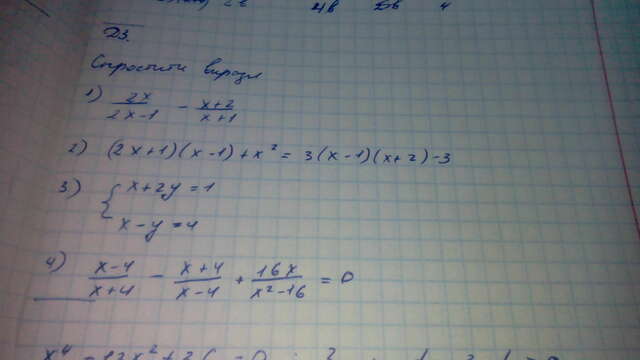 ДЗ.
Спростити вирази
1) 2x/2x-1 - x+2/x+1
2) (2x+1)(x-1)+x² = 3(x-1)(x+2)-3
3) { x+2y=1
x-y=4
4) x-4/x+4 - x+4/x-4 + 16x/x²-16 = 0